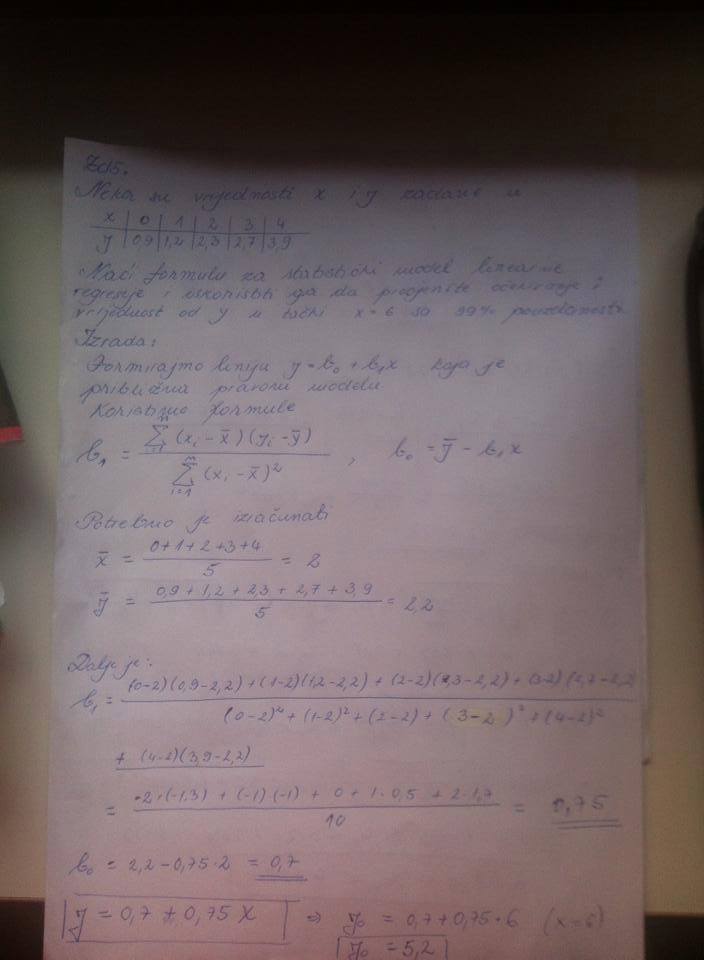 Zd5.
Neka su vrijednosti x i y zadane u
x | 0 | 1 | 2 | 3 | 4
y | 0,9 | 1,2 | 2,3 | 2,7 | 3,9
Naći formulu za statistički model linearne
regresije i iskoristiti ga da procjenite očekivanje i
vrijednost od y u tački x=6 sa 99% pouzdanosti.
Izrada:
Formirajmo liniju y=b₀+b₁x koja je
približna pravom modelu
Koristimo formule
b₁ = \frac{\sum_{i=1}^{n} (x_i - \bar{x})(y_i - \bar{y})}{\sum_{i=1}^{n} (x_i - \bar{x})^2} , b₀ = \bar{y} - b₁x
Potrebno je izračunati
\bar{x} = \frac{0+1+2+3+4}{5} = 2
\bar{y} = \frac{0,9+1,2+2,3+2,7+3,9}{5} = 2,2
Dalje je:
b₁ = \frac{(0-2)(0,9-2,2)+(1-2)(1,2-2,2)+(2-2)(2,3-2,2)+(3-2)(2,7-2,2}{(0-2)²+(1-2)²+(2-2)+(3-2)²+(4-2)²}
+ (4-2)(3,9-2,2)
= \frac{-2·(-1,3)+(-1)(-1)+0+1·0,5+2·1,7}{10} = 0,75
b₀ = 2,2-0,75·2 = 0,7
y = 0,7 + 0,75 x ⇒ y₀ = 0,7+0,75·6 (x=6)
y₀ = 5,2